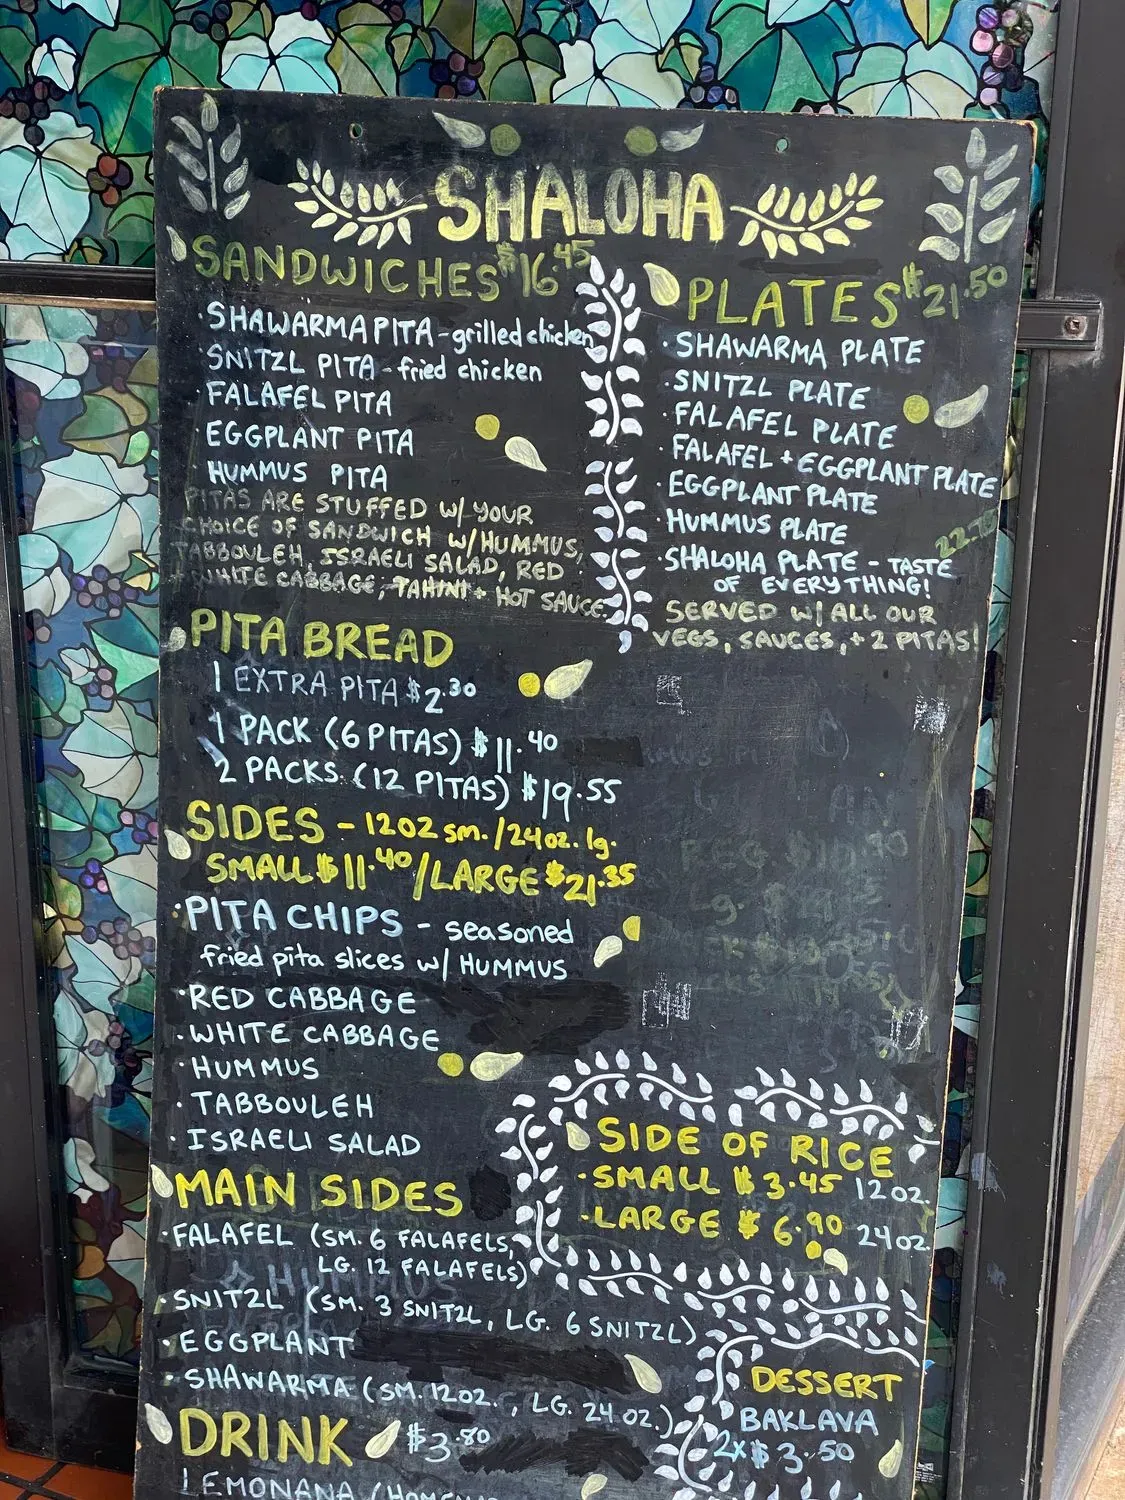 SHALOHA
SANDWICHES $16.45
· SHAWARMA PITA - grilled chicken
· SNITZL PITA - fried chicken
· FALAFEL PITA
· EGGPLANT PITA
· HUMMUS PITA
PITAS ARE STUFFED W/ YOUR
CHOICE OF SANDWICH W/ HUMMUS,
TABBOULEH, ISRAELI SALAD, RED
+ WHITE CABBAGE, TAHINI + HOT SAUCE.
PLATES $21.50
· SHAWARMA PLATE
· SNITZL PLATE
· FALAFEL PLATE
· FALAFEL + EGGPLANT PLATE
· EGGPLANT PLATE
· HUMMUS PLATE
· SHALOHA PLATE - TASTE
OF EVERYTHING!
SERVED W/ ALL OUR
VEGS, SAUCES, + 2 PITAS!
PITA BREAD
1 EXTRA PITA $2.30
1 PACK (6 PITAS) $11.40
2 PACKS (12 PITAS) $19.55
SIDES - 12OZ sm. / 24oz. lg.
SMALL $11.40/LARGE $21.35
· PITA CHIPS - seasoned
fried pita slices w/ HUMMUS
· RED CABBAGE
· WHITE CABBAGE
· HUMMUS
· TABBOULEH
· ISRAELI SALAD
MAIN SIDES
· FALAFEL (SM. 6 FALAFELS,
LG. 12 FALAFELS)
· SNITZL (SM. 3 SNITZL, LG. 6 SNITZL)
· EGGPLANT
· SHAWARMA (SM. 12OZ., LG. 24 OZ.)
DRINK $3.80
LEMONANA
SIDE OF RICE
· SMALL $3.45 12 OZ.
· LARGE $6.90 24 OZ.
DESSERT
BAKLAVA
2x $3.50